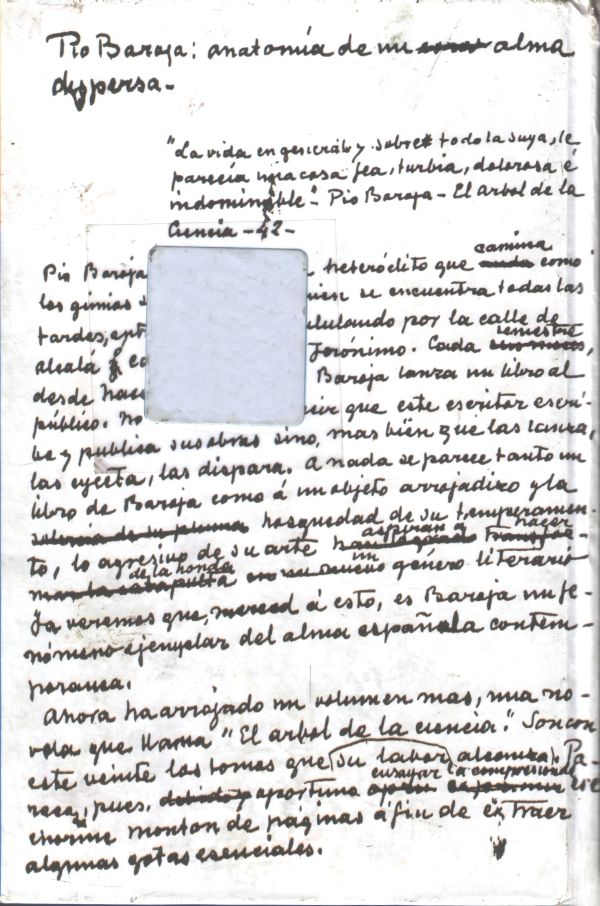 Pio Baroja: anatomía de un alma
dispersa.-
"La vida en general y sobre todo la suya, le
parecía una cosa fea, turbia, dolorosa é
indominable"- Pio Baroja - El arbol de la
Ciencia - 42 -
Pio Baroja heteróclito que camina como
los gimios se encuentra todas las
tardes, ululando por la calle de
alcalá Jerónimo. Cada semestre,
desde hace Baroja lanza un libro al
público. No que este escritor escri-
be y publica sus obras sino, mas bien que las lanza,
las eyecta, las dispara. A nada se parece tanto un
libro de Baroja como á un objeto arrojadizo y la
hosquedad de su temperamen-
to, lo agresivo de su arte aspiran a hacer
de la honda un género literario
Ya veremos que, merced á esto, es Baroja un fe-
nómeno ejemplar del alma española contem-
poranea.
Ahora ha arrojado un volumen mas, una no-
vela que llama "El arbol de la ciencia". Son con
este veinte los tomos que su labor alcanza. Pa-
rece, pues, oportuna ensayar la compresion de ese
enorme monton de páginas á fin de extraer
algunas gotas esenciales.